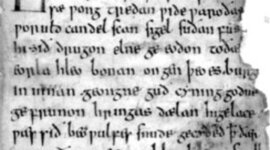 ƿong tredan ƿide ƿaroðas
ƿoruld candel scan sigel suðan fus
hi sið drugon elne ge eodon to ðæs
eorla hleo bonan ongenþeoes burgū
in innan geongne guð cyning godne
ge frunon hringas dælan hige lace
ƿæs sið beoƿulfes snude gecyðed ꝥ ðær